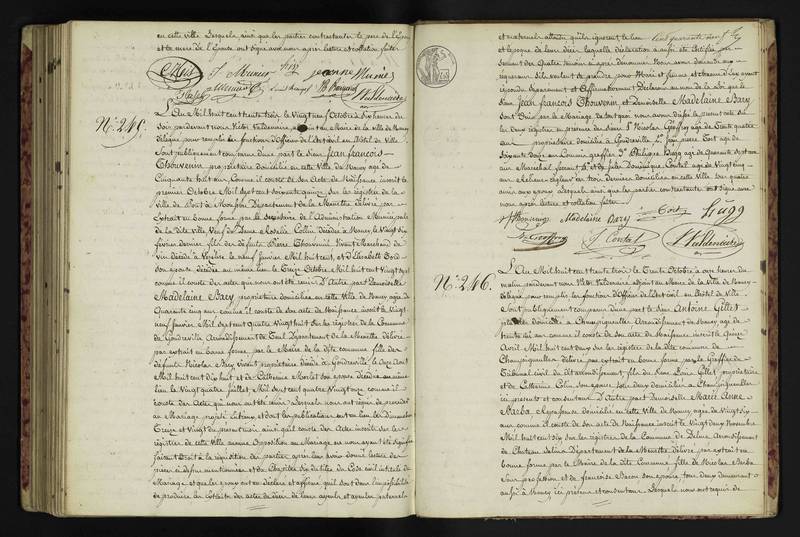 en cette ville Desquels, ainsi que les parties contractantes, le père de l'Epoux
et la mère de l'Epouse ont signé avec nous après lecture et collation faite
Jeanne Munier
Valdenaire
N.° 245.
L'An Mil huit cent trente trois le Vingt neuf Octobre à Six heures du
soir pardevant nous Victor Valdenaire, adjoint au Maire de la ville de Nancy
délégué pour remplir les fonctions d'Officier de l'Etat civil en l'Hôtel de Ville
Sont publiquement comparus d'une part le Sieur Jean françois
Thouvenin propriétaire domicilié en cette Ville de Nancy agé de
Cinquante huit ans Comme il conste de son Acte de Naissance inscrit le
premier Octobre Mil sept cent soixante quinze Sur les registres de la
Ville de Pont à Mousson Département de la Meurthe délivré par
Extrait en bonne forme par le Secrétaire de l'Administration Municipale
de la dite Ville, Veuf de Dame Rosalie Collin décédée à Nancy le Vingt six
février dernier fils des défunts Pierre Thouvenin Vivant Marchand de
vin décédé à le neuf Janvier Mil huit cent, et d'Elisabeth
son épouse décédée au même lieu le Treize Octobre Mil huit cent sept
comme il conste des actes qui nous ont été remis D'Autre part Demoiselle
Madelaine Bary propriétaire domiciliée en cette Ville de Nancy agée de
Quarante cinq ans comme il conste de son Acte de Naissance inscrit le Vingt
neuf Janvier Mil sept cent quatre Vingt huit Sur les registres de la Commune
de Gondreville Arrondissement de Toul Département de la Meurthe délivré
par extrait en bonne forme par le Maire de la dite commune fille des
défunts Nicolas Bary Vivant propriétaire décédé à Gondreville le onze Août
Mil huit cent dix huit et de Catherine Morlot son épouse décédée au même
lieu le Vingt quatre Juillet Mil sept cent quatre Vingt onze comme il
conste des Actes qui nous ont été remis Lesquels nous ont requis de procéder
au Mariage projeté entre eux et dont les publications ont eu lieu les Dimanches
Treize et Vingt du présent mois ainsi qu'il conste des actes inscrits sur les
registres de cette ville aucune Opposition au Mariage ne nous ayant été signifiée
faisant droit à la réquisition des parties après leur avoir donné lecture des
pièces ci dessus mentionnées et du Chapitre six du titre du Code civil intitulé du
Mariage et que les époux ont eu déclaré et affirmé qu'il sont dans l'impossibilité
de produire les extraits des actes de décès de leurs ayeuls et ayeules paternels
et maternels attendu qu'ils ignorent le lieu
et l'époque de leur décès laquelle déclaration a aussi été Certifiée par
serment des Quatre témoins ci après dénommés Nous avons demandé aux
requérans s'ils veulent se prendre pour Mari et femme et chacun d'Eux ayant
répondu Séparément et Affirmativement Déclarons au nom de la Loi que le
Sieur Jean francois Thouvenin et Demoiselle Madelaine Bary
sont Unis par le Mariage de tout quoi nous avons dressé le présent acte sur
les deux registres en présence des Sieurs 1° Nicolas Geoffroy agé de Trente quatre
ans propriétaire domicilié à Gondreville 2° Jean pierre Tort agé de
Soixante Douze ans Commis greffier 3° Philippe Hugg agé de Quarante sept ans
Marechal ferrant & 4° Dominique Contal agé de Vingt cinq
ans domiciliés en cette Ville
amis aux époux lesquels ainsi que les parties contractantes ont signé avec
nous après lecture et collation faite
Thouvenin Madelaine Bary Tort Hugg
N. Geoffroy Contal Valdenaire
N.° 246.
L'An Mil huit cent trente trois le Trente Octobre à onze heures du
matin pardevant nous Victor Valdenaire adjoint au Maire de la Ville de Nancy
délégué pour remplir les fonctions d'Officier de l'Etat civil en l'Hôtel de Ville
Sont publiquement comparus d'une part le Sieur Antoine Gillet
domicilié à Champigneulles Arrondissement de Nancy agé de
trente six ans comme il conste de son acte de Naissance inscrit le Quinze
Avril Mil huit cent deux sur les registres de la dite commune de
Champigneulles délivré par extrait en bonne forme par le Greffier du
Tribunal civil du dit arrondissement fils du Sieur Louis Gillet propriétaire
et de Catherine Colin son épouse tous deux domiciliés à Champigneulles
ici présents et consentans D'Autre part Demoiselle Marie Anne
Barba Repasseuse domiciliée en cette Ville de Nancy agée de Vingt six
ans comme il conste de son acte de Naissance inscrit le Vingt deux Novembre
Mil huit cent Six sur les registres de la Commune de Delme Arrondissement
de Chateau Salins Département de la Meurthe délivré par extrait en
bonne forme par le Maire de la dite Commune fille de Nicolas Barba
Sans profession et de françoise Bacon son épouse tous deux demeurant
aussi à Nancy ici présents et consentans Lesquels nous ont requis de